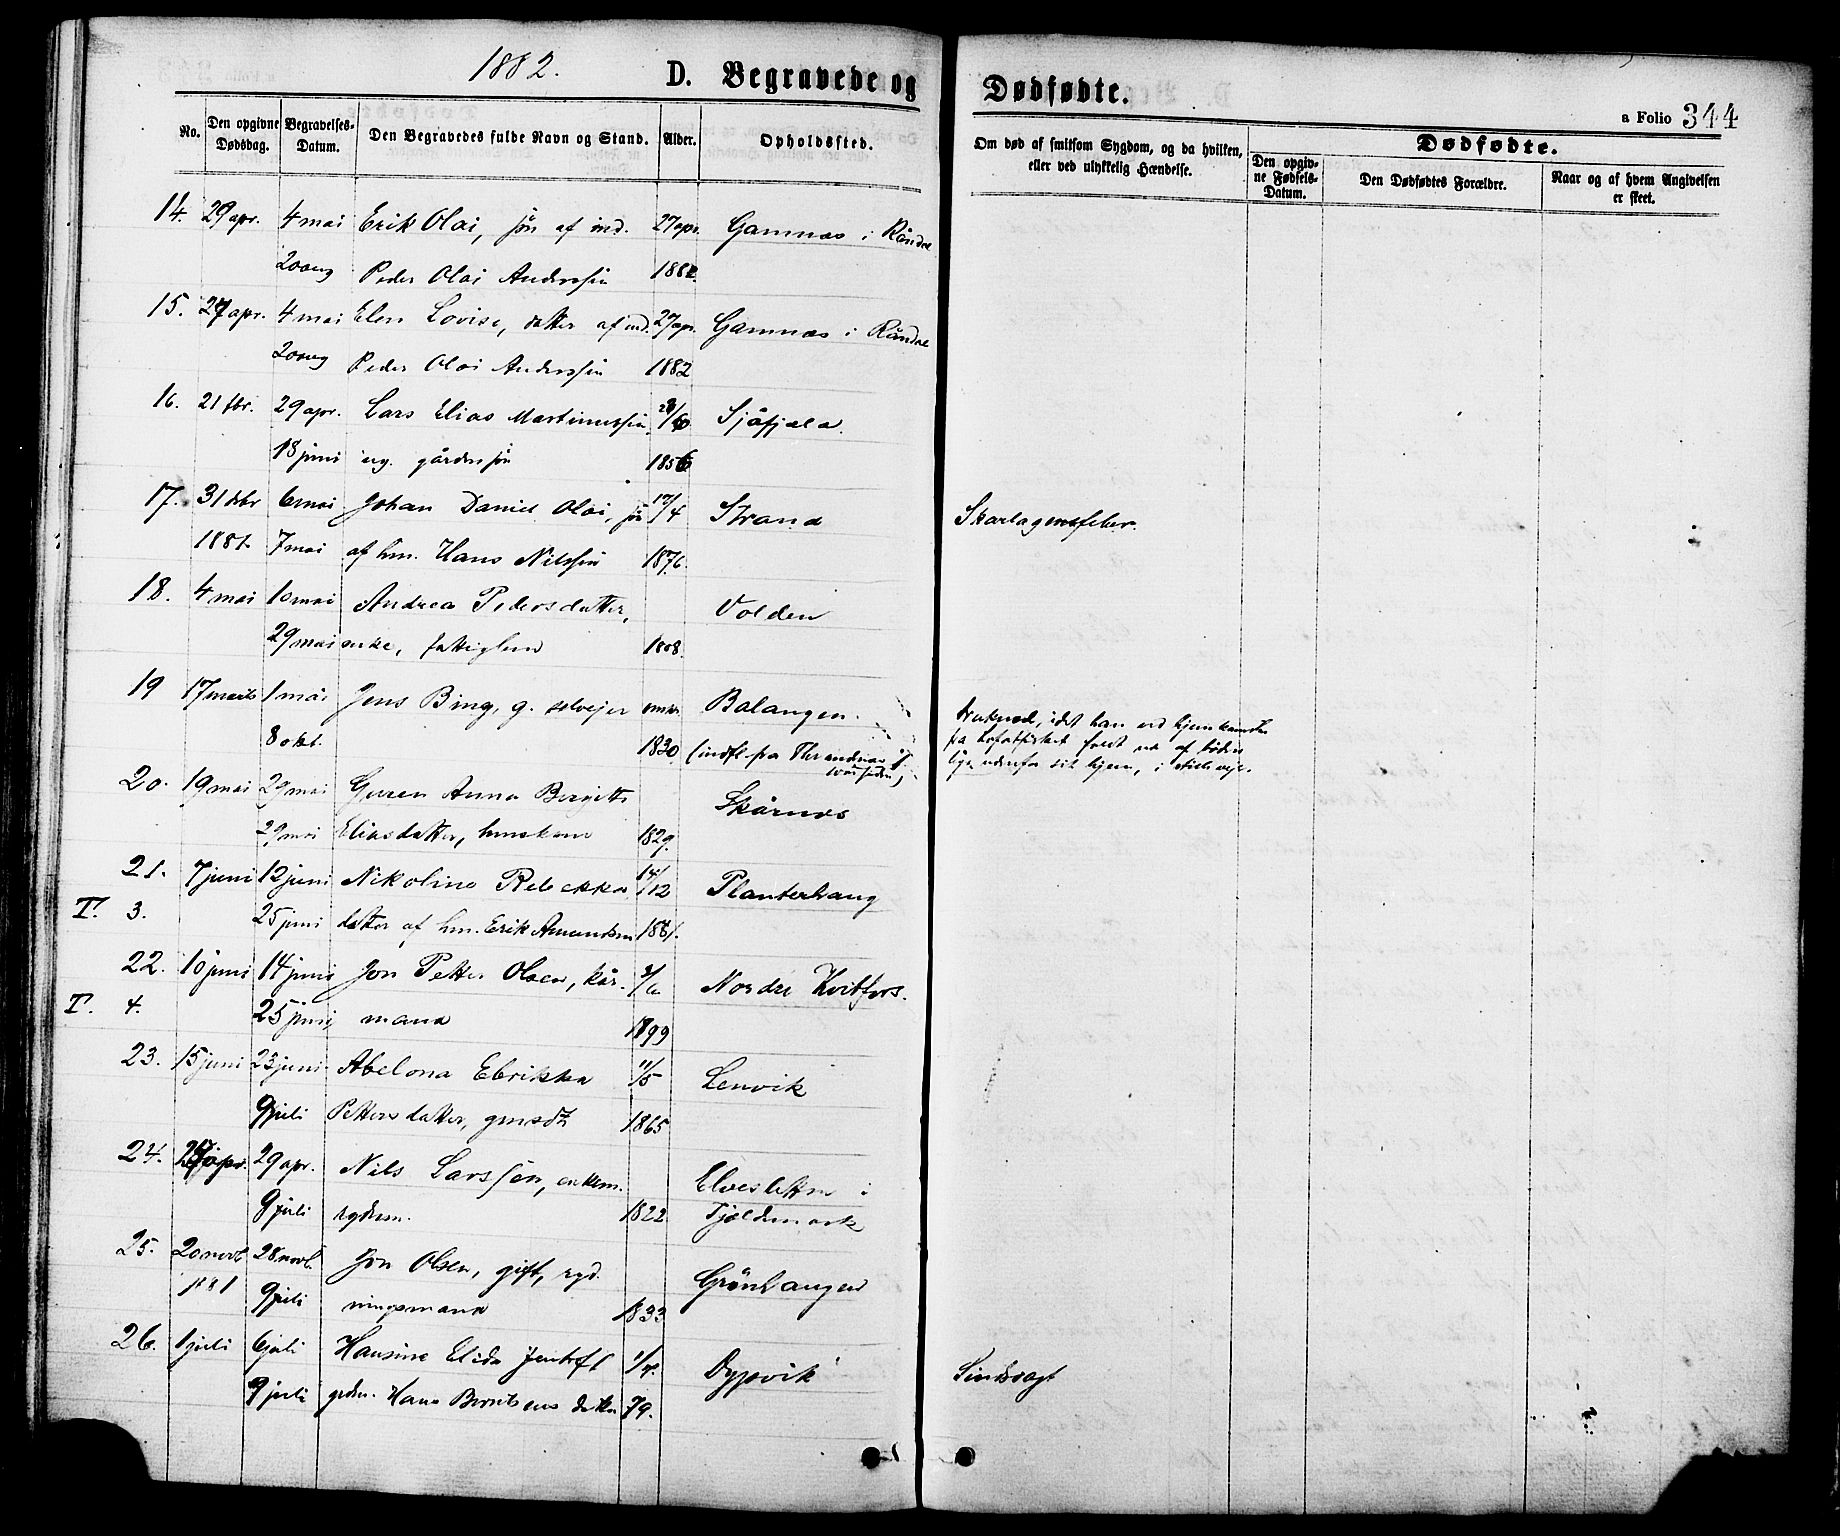 1882.
D. Begravede og Dødfødte.
a Folio 344
No.
Den opgivne Dødsdag.
Begravelses-Datum.
Den Begravedes fulde Navn og Stand.
Alder.
Opholdssted.
Om død af smitsom Sygdom, og da hvilken, eller ved ulykkelig Hændelse.
Dødfødte.
Den opgivne Fødsels-Datum.
Den Dødfødtes Forældre.
Naar og af hvem Angivelsen er skeet.
14. 29 apr. 4 mai Erik Olai, søn af ind. 27 apr. Gamnæs i Råndæ
20 aug Peder Olai Anderssøn 1882.
15. 27 apr. 4 mai Elen Lovise, datter af ind. 27 apr. Gamnæs i Råndæ
20 aug Peder Olai Anderssøn 1882
16. 21 fbr. 29 apr. Lars Elias Martinussøn Sjåfjæla.
18 juni ug. gårdmssøn 1856
17. 31 dbr 6 mai Johan Daniel Olai, søn 17/4 Strand Skarlagensfeber.
1881. 7 mai af hm. Hans Nilssøn 1876.
18. 4 mai 10 mai Andrea Pedersdatter, Volden
29 mai enke, fattiglem 1808.
19 17 marts 1 mai Jens Bing, g. selvejer omkr. Balangen. drukned, idet han ved hjemkomsten
8 okt. 1830 (indfl. fra Throndnæs fra Lofotfisket faldt ud af båden
lige udenfor sit hjem, i
20. 19 mai 29 mai Guren Anna Bergitte Skårnes
29 mai Eliasdatter, huuskone 1829.
21. 7 juni 12 juni Nikoline Rebekka 14/12 Planterhaug
T. 3. 25 juni datter af hm. Erik Amundsen 1881.
22. 10 juni 14 juni Jon Petter Olsen, kår- Nordre Kvitfors.
T. 4. 25 juni mand 1799
23. 15 juni 23 juni Abelona Ebrikka 11/5 Lenvik
9 juli Pettersdatter, gmsdt 1865
24. apr. 29 apr. Nils Larssøn, enkem. Elvesletten i
9 juli rydnm. 1822 Tjeldemark
25. 20 novb. 28 novb. Jon Olsen, gift, ryd- Grønhaugen
1881 9 juli ningsmand 1833
26. 1 juli 6 juli Hansine Elida Jentoft 1/4. Dypvik Sindsvagt
9 juli grdm. Hans Berntsens datter 79.